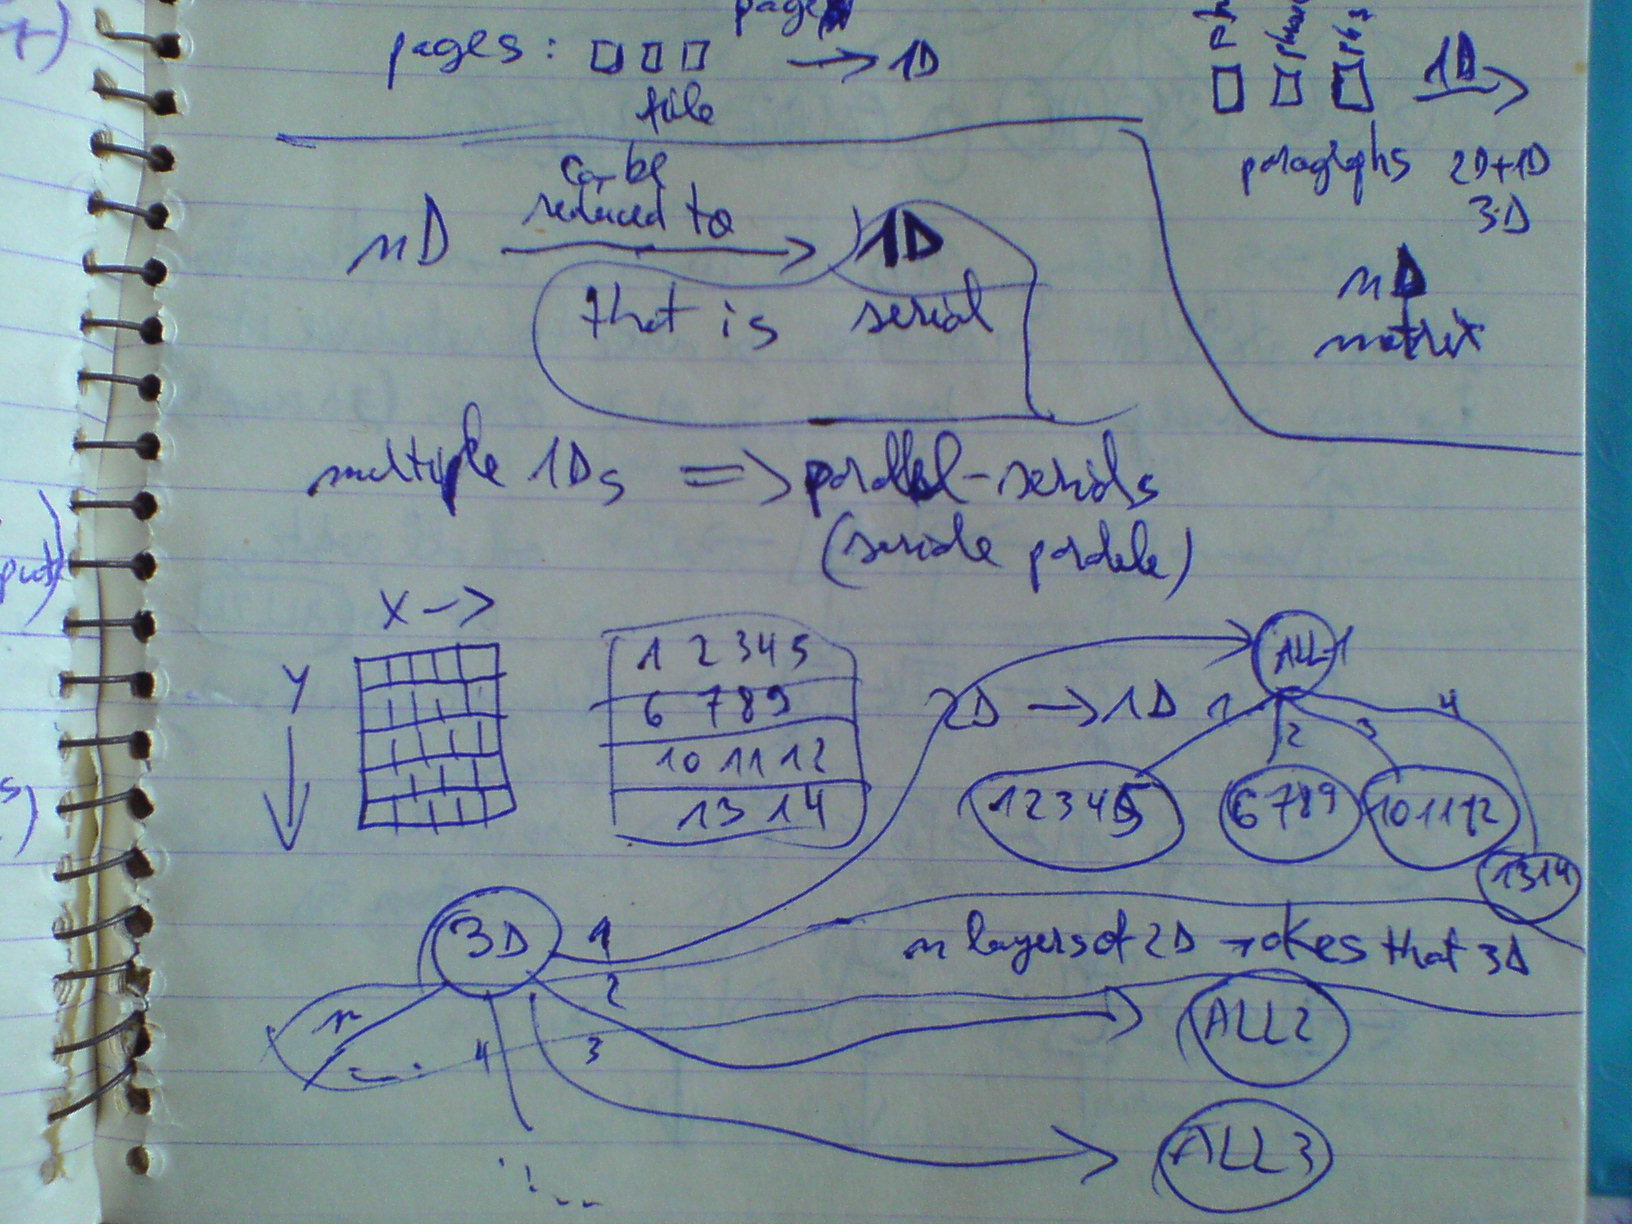 pages
pages : → 1D
file
1D
paragraphs 2D+1D
3D
nD
matrix
can be
reduced to
nD → 1D
that is serial
multiple 1Ds => parallel-serials
(seriale paralele)
X ->
Y
1 2 3 4 5
6 7 8 9
10 11 12
13 14
2D → 1D
ALL1
1 2 3 4
1 2 3 4 5
6 7 8 9
10 11 12
13 14
3D
1
2
3
4
n
n layers of 2D makes that 3D
ALL2
ALL3